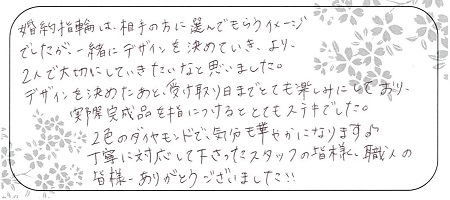 婚約指輪は、相手の方に選んでもらうイメージ
でしたが、一緒にデザインを決めていき、より
2人で大切にしていきたいなと思いました。
デザインを決めたあと、受け取り日までとても楽しみにしており、
実際完成品を指につけるととてもステキでした。
2色のダイヤモンドで、気分も華やかになります♪
丁寧に対応して下さったスタッフの皆様、職人の
皆様ーありがとうございました!!